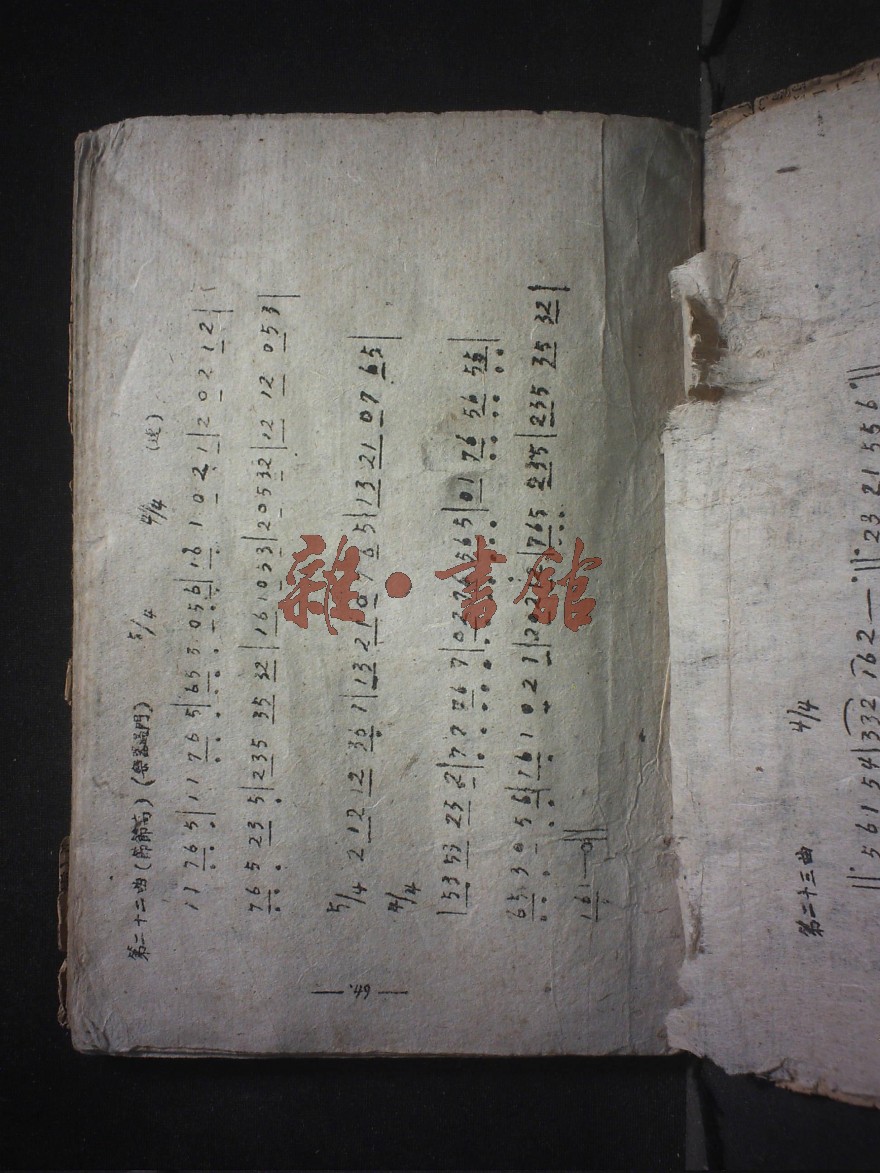 第二十二曲(節節高)(樂器過門) 5/4 4/4 (速)
11 765|11 765|655056|161021|20212|
76523 5|2353532|161053|2053 2|12 12 053|
5/4 2 12 12 361|13 210 765|13 21 07 65|
4/4
|53 53 23 2|77 76 7|0276 565|01 76 56 56|
6530 56|161021|20212|765 235|235 35 32|
161—0‖
—49—
第二十三曲 4/4
‖:56154|332 162—:‖:23 21 556:‖
雜·書館